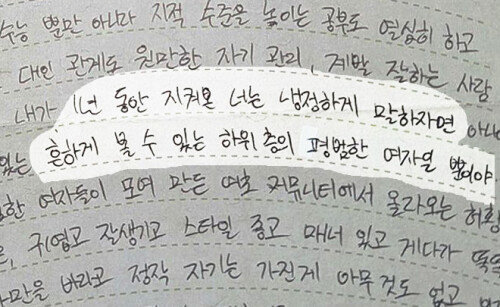 수능 뿐만 아니라 지적 수준을 높이는 공부도 열심히 하고
대인 관계도 원만한 자기 관리, 제발 잘하는 사람
내가 1년 동안 지켜본 너는 냉정하게 말하자면
흔하게 볼 수 있는 하위 층의 평범한 여자일 뿐이야
한 여자들이 모여 만든 여초 커뮤니티에서 올라오는 허황
귀엽고 잘생기고 스타일 좋고 매너 있고 게다가 똑똑
만을 바라고 정작 자기는 가진게 아무 것도 없고